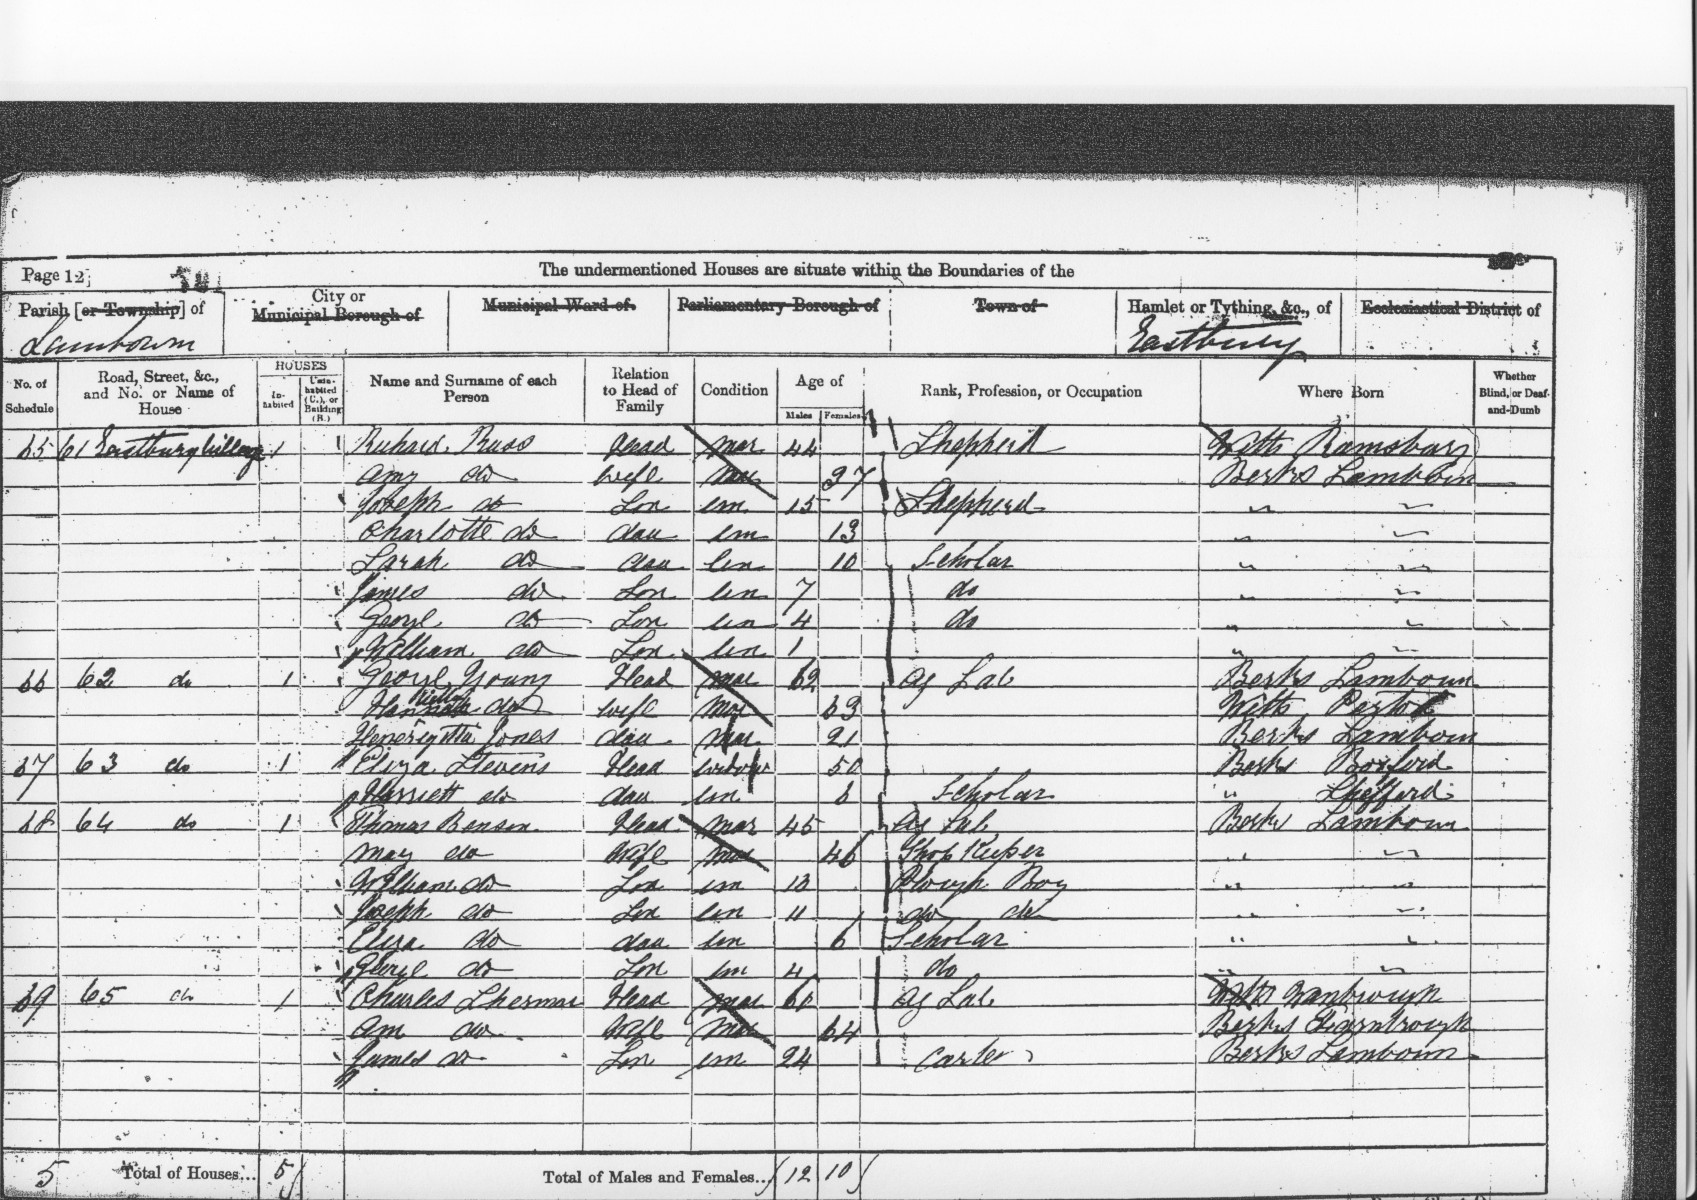 Page 12
The undermentioned Houses are situate within the Boundaries of the
Parish [or Township] of
City or Municipal Borough of
Municipal Ward of
Parliamentary Borough of
Town of
Hamlet or Tything, &c., of
Ecclesiastical District of
Lambourn
Eastbury
No. of Schedule
Road, Street, &c., and No. or Name of House
HOUSES
In-habited
Unin-habited (U.), or Building (B.)
Name and Surname of each Person
Relation to Head of Family
Condition
Age of
Males
Females
Rank, Profession, or Occupation
Where Born
Whether Blind, or Deaf-and-Dumb
65 61 Eastbury village 1 Richard Russ Head mar 44 Shepherd Wilts Ramsbury
Amy do wife mar 37 Berks Lambourn
Joseph do Son un 15 Shepherd " "
Charlotte do dau un 13 " "
Sarah do dau un 10 Scholar " "
James do Son un 7 do " "
George do Son un 4 do " "
William do Son un 1 " "
66 62 do 1 George Young Head mar 62 Ag Lab Berks Lambourn
Hannah do wife mar 63 Wilts
Henerietta Jones dau mar 21 Berks Lambourn
67 63 do 1 Eliza Stevens Head widow 50 Berks Boxford
Harriett do dau un 8 Scholar " Shefford
68 64 do 1 Thomas Benson Head mar 45 Ag Lab Berks Lambourn
May do Wife mar 46 Shop Keeper " "
William do Son un 13 Plough Boy " "
Joseph do Son un 11 do do " "
Eliza do dau un 6 Scholar " "
George do Son un 4 do " "
69 65 do 1 Charles Head mar 66 Ag Lab Wilts
Ann do Wife mar 64 Berks
James do Son un 24 Carter Berks Lambourn
5 Total of Houses... 5
Total of Males and Females... 12 10